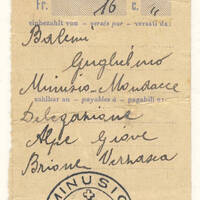 Fr. 16 C. "
einbezahlt von - versés par - versati da:
Balemi
Guglielmo
Minusio-Mondacce
zahlbar an - payables à - pagabili a:
Delegazione
Alpe Giove
Brione Verzasca
MINUSIO